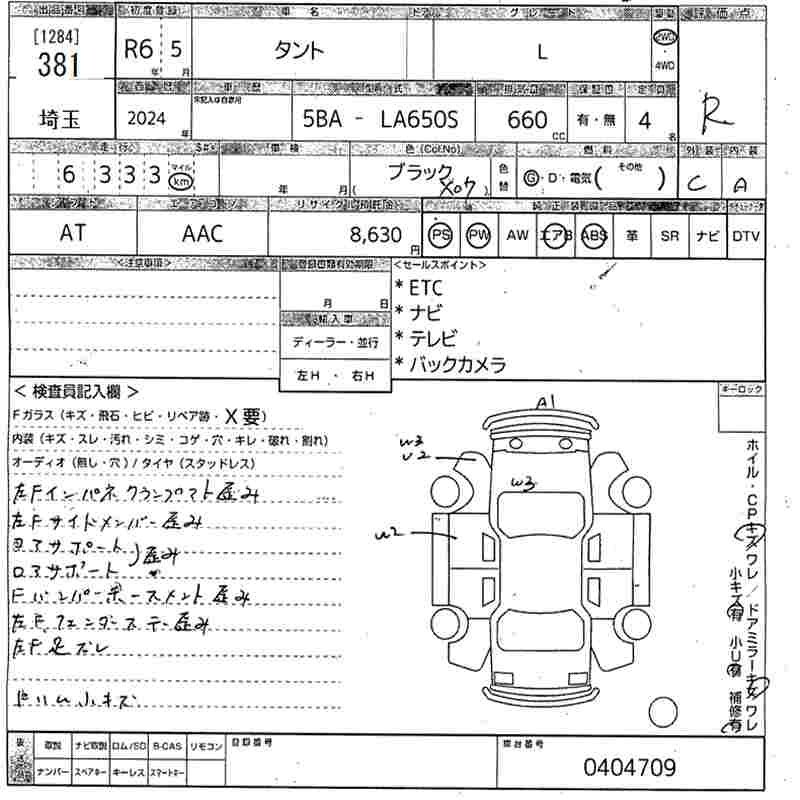 出品店番 初度登録 車名 ドア グレード 駆動 評価点
[1284]
381 R6 5 タント L 2WD
年 月 4WD
埼玉 2024 年 未記入は自家用 5BA - LA650S 660 CC 有・無 4 名 R
車歴 型式 排気量 保証書 定員
走行 車検 色(Col.No) 燃料 外装 内装
6 3 3 3 マイル km 年 月 ブラック 色替 G・D・電気( その他 ) C A
( X07 )
エアコン リサイクル預託金
AT AAC 8,630 円 PS PW AW エアB ABS 革 SR ナビ DTV
<注意事項> 登録書類有効期限 <セールスポイント>
月 日 * ETC
輸入車 * ナビ
ディーラー・並行 * テレビ
左H ・ 右H * バックカメラ
< 検査員記入欄 > キーロック
Fガラス(キズ・飛石・ヒビ・リペア跡・X要)
内装(キズ・スレ・汚れ・シミ・コゲ・穴・キレ・破れ・割れ)
オーディオ(無し・穴)/タイヤ(スタッドレス)
左Fインパネ
左Fサイドメンバー歪み
ロアサポート
歪み
ロアサポート
左Fフェンダーステー歪み
左F足ズレ
小キズ
A1
W3
U2
W3
W2
ホイル・CPキズワレ/ドアミラーキズワレ
小キズ有 小U有 補修有
取説 ナビ取説 ロム/SD B-CAS リモコン 登録番号 車台番号
ナンバー スペアキー キーレス スマートキー 0404709